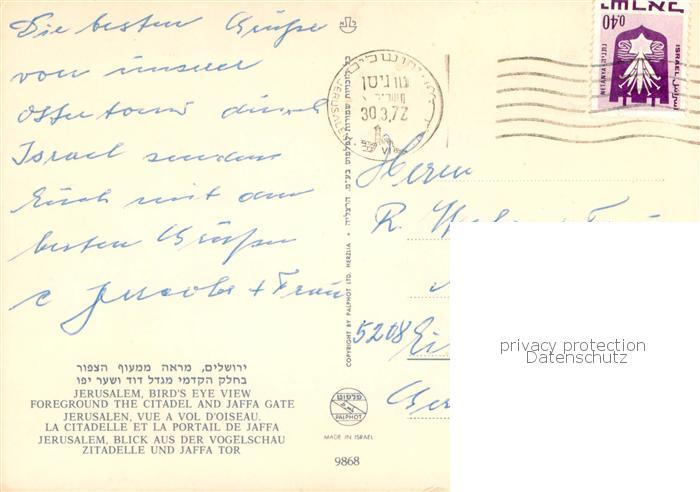 Die besten Grüße
von unserer
Ostertour durch
Israel senden
Euch mit den
besten Grüßen
Jacobs + Frau
ירושלים, מראה ממעוף הצפור
בחלק הקדמי מגדל דוד ושער יפו
JERUSALEM, BIRD'S EYE VIEW
FOREGROUND THE CITADEL AND JAFFA GATE
JERUSALEN, VUE A VOL D'OISEAU.
LA CITADELLE ET LA PORTAIL DE JAFFA
JERUSALEM, BLICK AUS DER VOGELSCHAU
ZITADELLE UND JAFFA TOR
COPYRIGHT BY PALPHOT LTD. HERZLIA • כל הזכויות שמורות לפלפוט בע״מ. הרצליה
פלפוט
PALPHOT
MADE IN ISRAEL
9868
30.3.72
VI
0.40
ISRAEL
NETANYA
נתניה
Herrn
R.
5208 Ei
privacy protection
Datenschutz